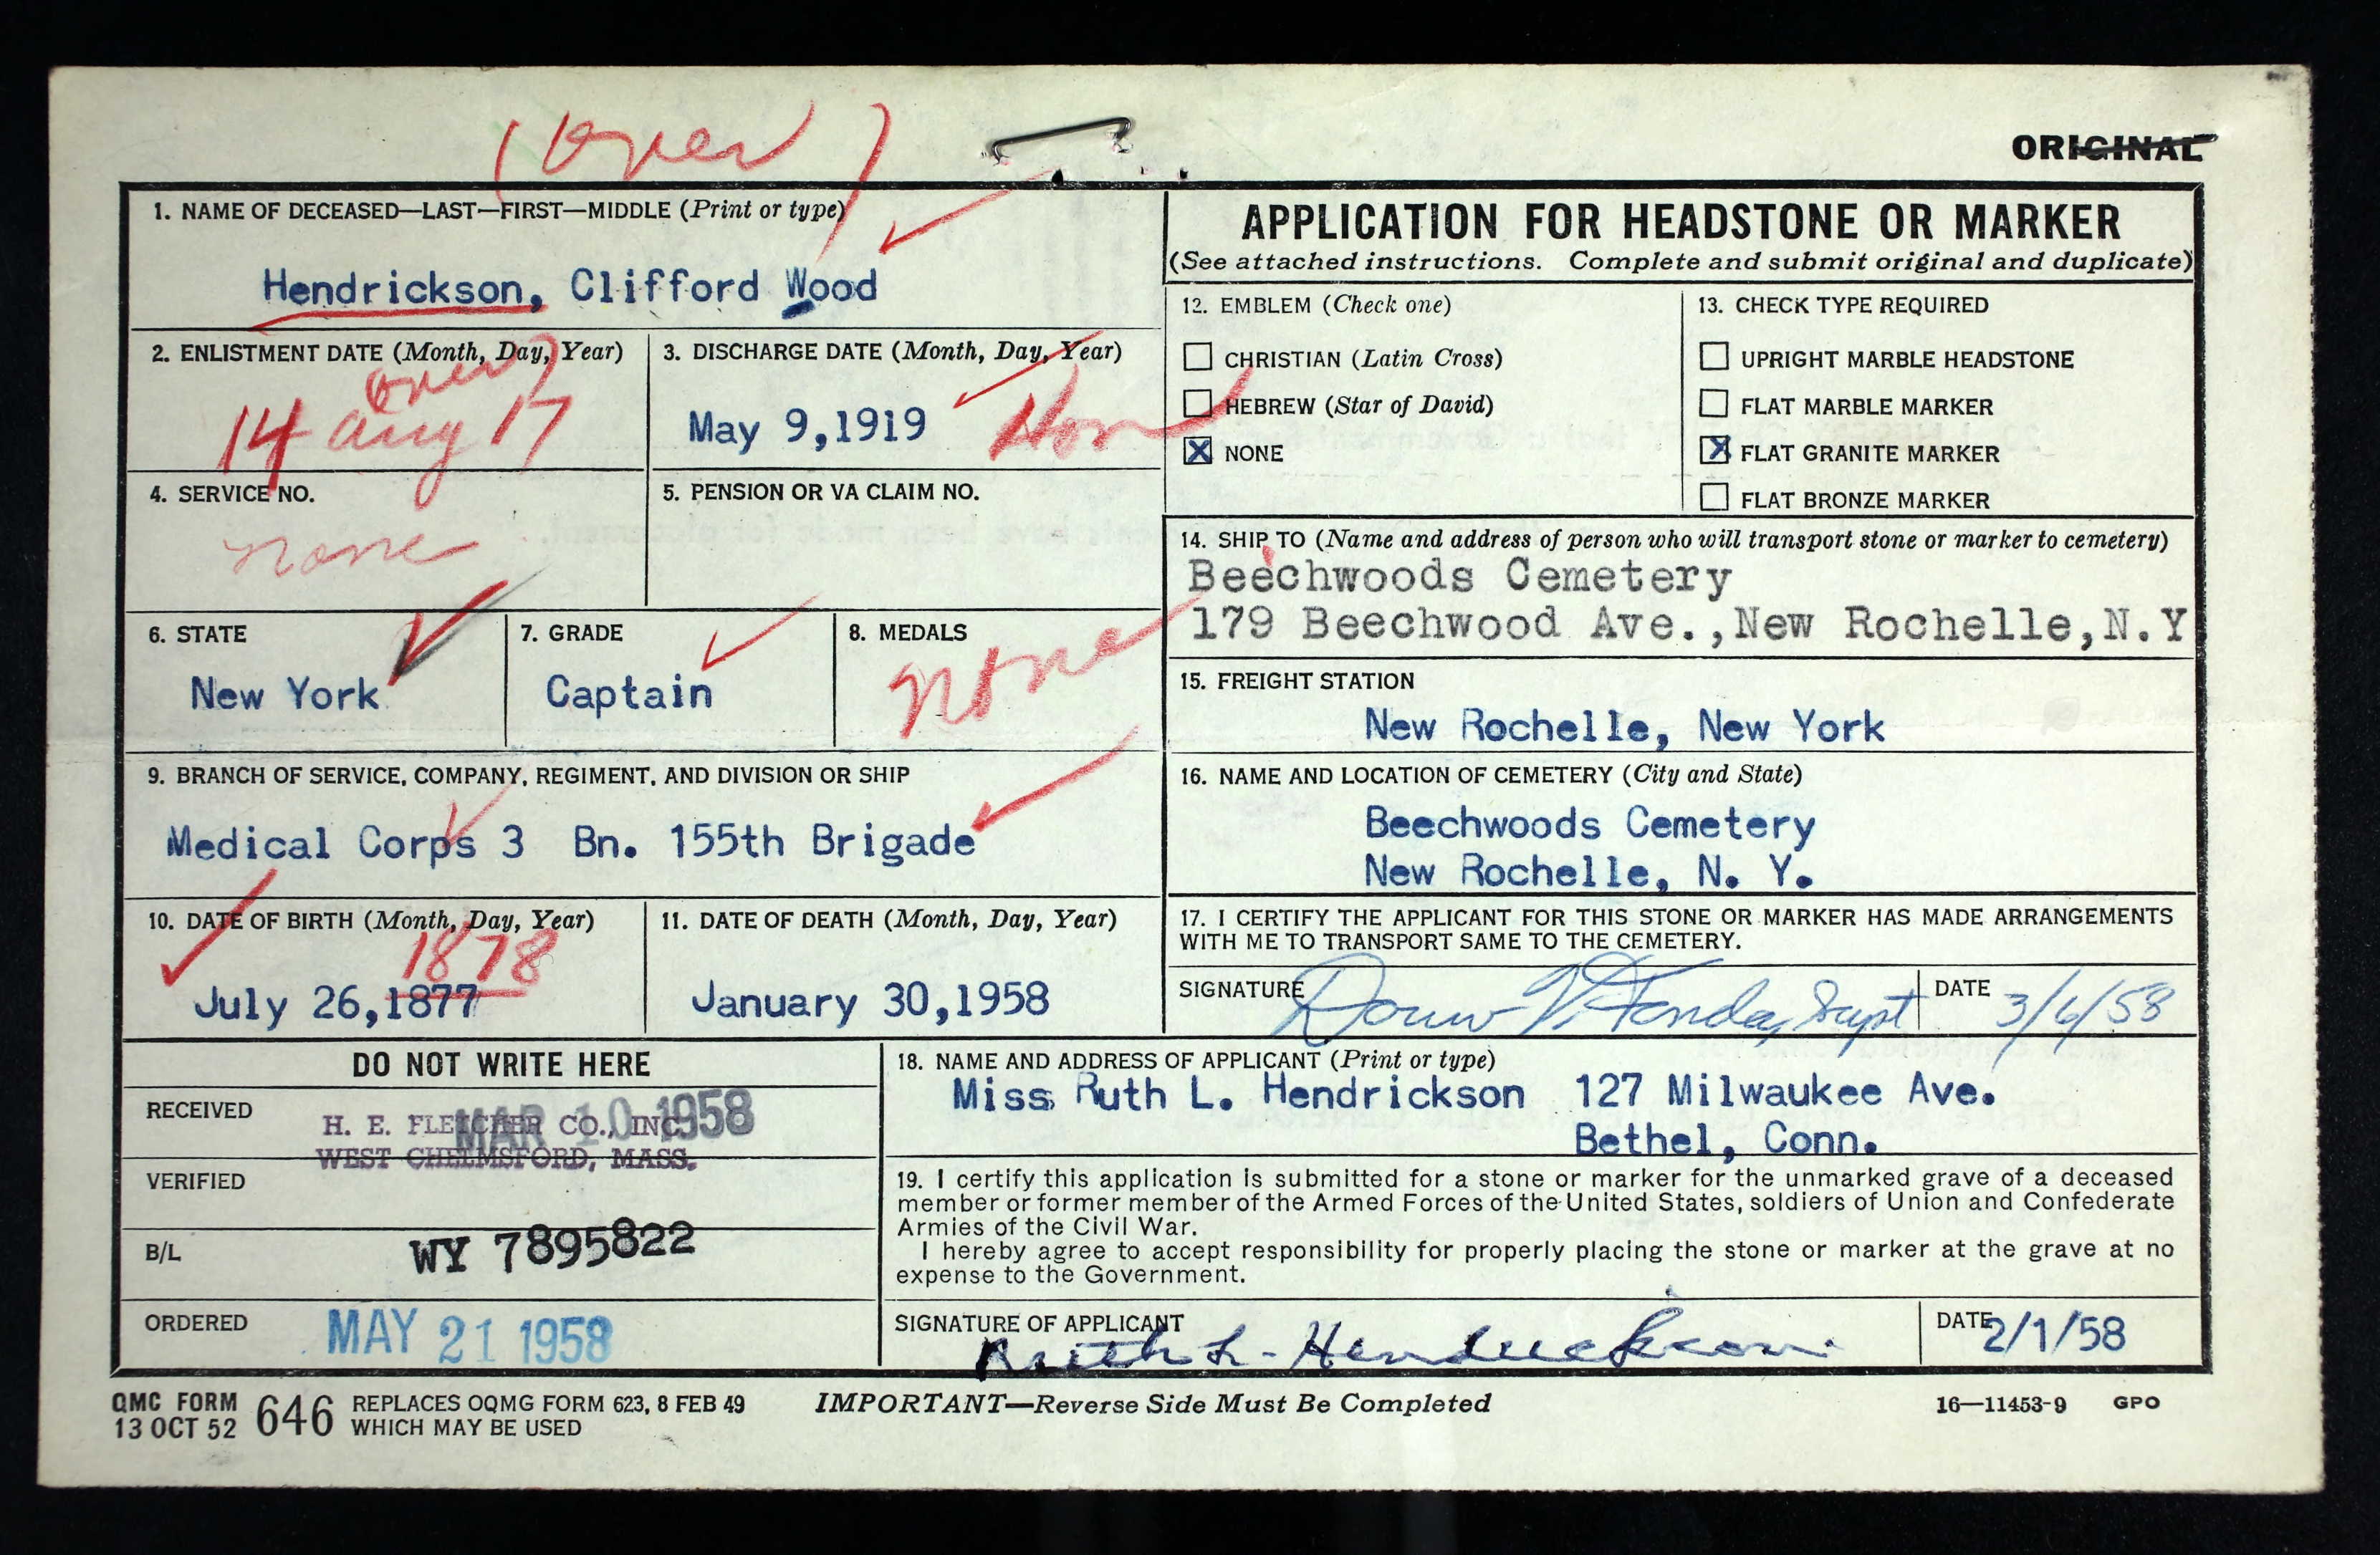 (Over)
ORIGINAL
1. NAME OF DECEASED—LAST—FIRST—MIDDLE (Print or type)
Hendrickson, Clifford Wood
2. ENLISTMENT DATE (Month, Day, Year)
over)
14 Aug 17
3. DISCHARGE DATE (Month, Day, Year)
May 9,1919 Hon
4. SERVICE NO.
none
5. PENSION OR VA CLAIM NO.
6. STATE
New York
7. GRADE
Captain
8. MEDALS
None
9. BRANCH OF SERVICE, COMPANY, REGIMENT, AND DIVISION OR SHIP
Medical Corps 3 Bn. 155th Brigade
10. DATE OF BIRTH (Month, Day, Year)
1878
July 26,1877
11. DATE OF DEATH (Month, Day, Year)
January 30,1958
APPLICATION FOR HEADSTONE OR MARKER
(See attached instructions. Complete and submit original and duplicate)
12. EMBLEM (Check one)
CHRISTIAN (Latin Cross)
HEBREW (Star of David)
X NONE
13. CHECK TYPE REQUIRED
UPRIGHT MARBLE HEADSTONE
FLAT MARBLE MARKER
X FLAT GRANITE MARKER
FLAT BRONZE MARKER
14. SHIP TO (Name and address of person who will transport stone or marker to cemetery)
Beechwoods Cemetery
179 Beechwood Ave.,New Rochelle,N.Y
15. FREIGHT STATION
New Rochelle, New York
16. NAME AND LOCATION OF CEMETERY (City and State)
Beechwoods Cemetery
New Rochelle, N. Y.
17. I CERTIFY THE APPLICANT FOR THIS STONE OR MARKER HAS MADE ARRANGEMENTS
WITH ME TO TRANSPORT SAME TO THE CEMETERY.
SIGNATURE Douw Fonda, Supt
DATE 3/6/58
DO NOT WRITE HERE
RECEIVED
MAR 10 1958
H. E. FLETCHER CO., INC.
WEST CHELMSFORD, MASS.
VERIFIED
B/L WY 7895822
ORDERED MAY 21 1958
18. NAME AND ADDRESS OF APPLICANT (Print or type)
Miss Ruth L. Hendrickson 127 Milwaukee Ave.
Bethel, Conn.
19. I certify this application is submitted for a stone or marker for the unmarked grave of a deceased
member or former member of the Armed Forces of the United States, soldiers of Union and Confederate
Armies of the Civil War.
I hereby agree to accept responsibility for properly placing the stone or marker at the grave at no
expense to the Government.
SIGNATURE OF APPLICANT
Ruth L. Hendrickson
DATE 2/1/58
QMC FORM
13 OCT 52 646 REPLACES OQMG FORM 623, 8 FEB 49
WHICH MAY BE USED
IMPORTANT—Reverse Side Must Be Completed
16—11453-9 GPO